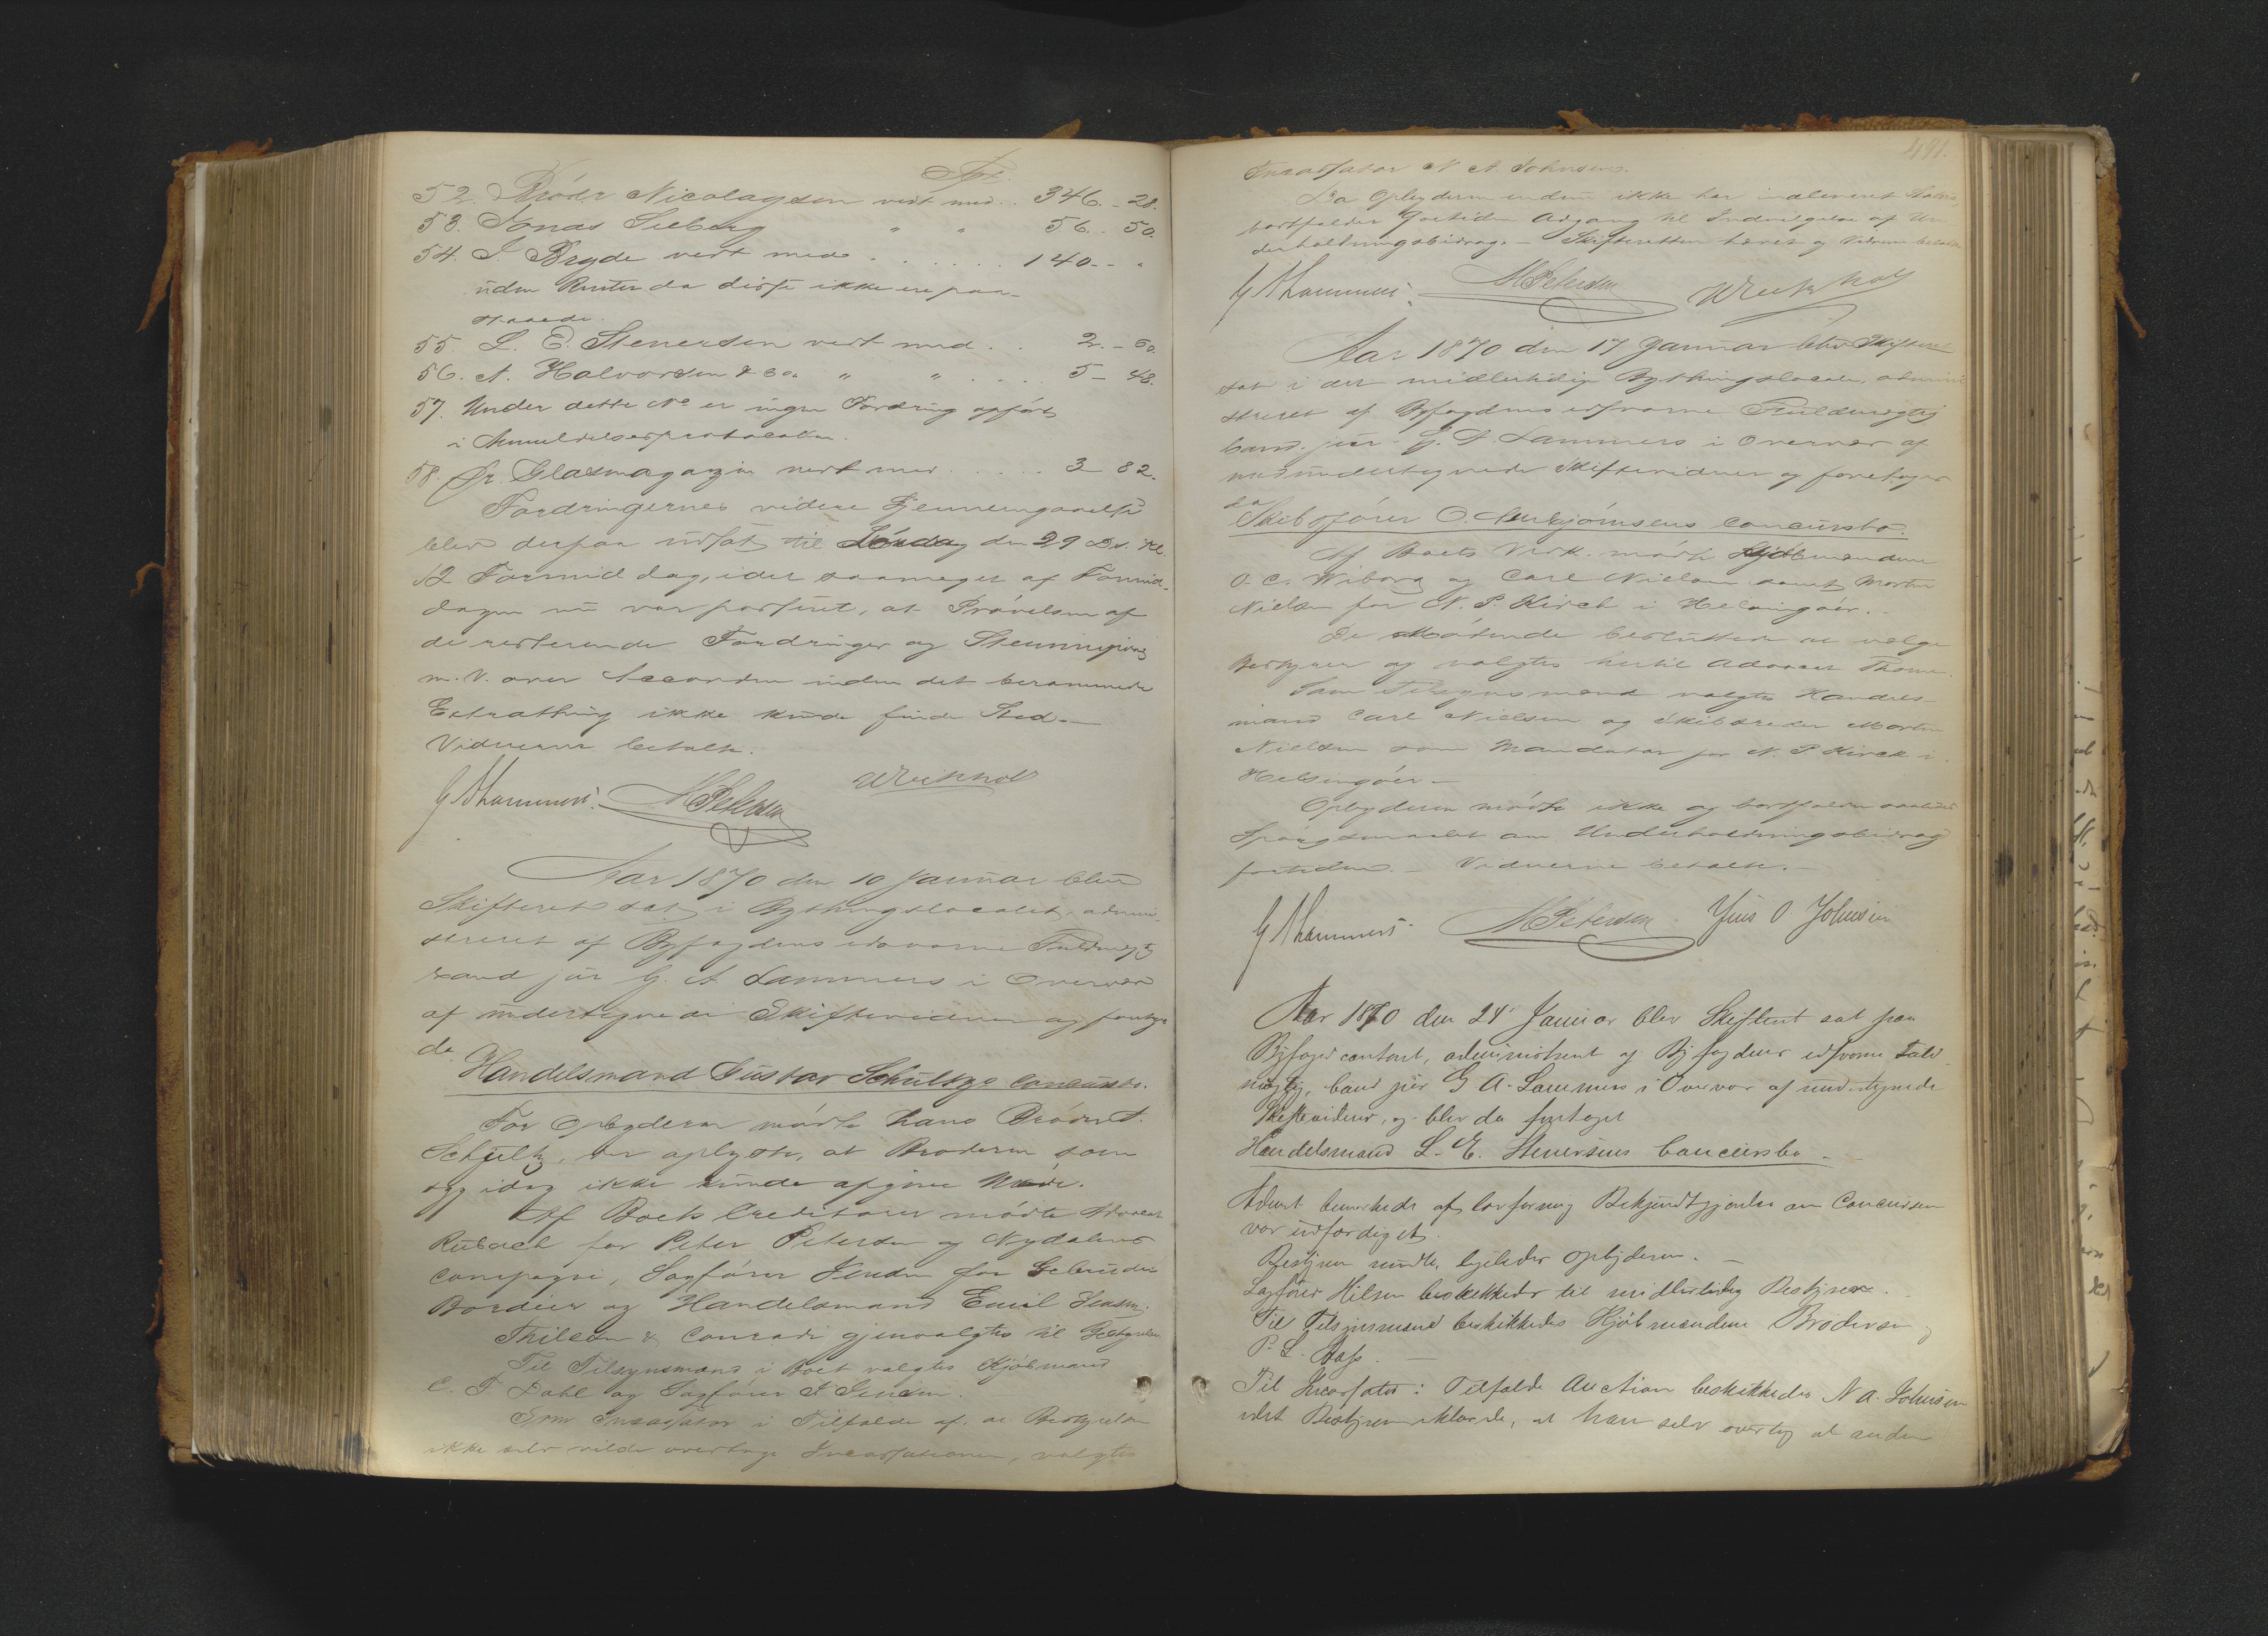 Spd.
52. Brödr Nicolaysen vedt med . . 346. - 28.
53. Jonas Sieberg " " 56. . 50.
54. I Bryde vedt med . . . . . . 140 - - "
uden Renter da disse ikke ere paa-
staaede.
55. L. E. Stenersen vedt med . . 2. - 60.
56. A. Halvorsen & Co " " . . . . 5 - 48.
57. Under dette No er ingen Fordring opført
i Anmeldelsesprotocolen.
58. Chr. Glasmagazin vedt med . . . . 3 - 82.
Fordringernes videre Gjennemgaaelse
blev derpaa udsat til Lørdag den 29 Ds. Kl.
12 Formiddag, idet saameget af Formid-
dagen nu var passeret, at Prøvelsen af
de resterende Fordringer og Stemmegivning
m. V. over Accorden inden det berammede
Extrathing ikke kunde finde Sted. -
Vidnerne betalte.
G A Lammers. M Petersen
Aar 1870 den 10 Januar blev
Skifteret sat i Bythingslocalet, admini-
streret af Byfogdens edsvorne Fuldmægtig
cand jur G. A. Lammers i Overvær
af undertegnede Skiftevidner og foretoges
da
Handelsmand Gustav Schultzes Concursbo.
For Opbyderen mødte hans Broder A.
Schultz, der oplyste, at Broderen som
syg idag ikke kunde afgive Møde.
Af Boets Creditorer mødte Advocat
Rubach for Peter Petersen og Nydalens
Compagni, Sagfører Jensen for Gebrüder
Bordier og Handelsmand Emil Jensen.
Thilesen & Conradi gjenvalgtes til Bestyrelse.
Til Tilsynsmænd i Boet valgtes Kjøbmand
C. F. Dahl og Sagfører Jensen.
Som Incassator i Tilfælde af at Bestyrelsen
ikke selv vilde overtage Incassationen, valgtes
491.
Incassator N A. Johnsen.
Da Opbyderen endnu ikke har indleveret Status,
bortfalder fortiden Adgang til Indvilgelse af Un-
derholdningsbidrag. - Skifteretten hævet og Vidnerne betalte
G A Lammers. M Petersen
Aar 1870 den 17 Januar blev Skifteret
sat i det midlertidige Bythingslocale, admini
streret af Byfogdens edsvorne Fuldmægtig
cand. jur. G. A. Lammers i Overvær af
medundertegnede Skiftevidner og foretoges
da
Skibsfører O. Concursbo.
Af Boets Vedk. mødte Kjøbmændene
O. C. Wiborg og Carl Nielsen samt Morten
Nielsen for N. P. Kirck i Helsingöer. -
De Mødende besluttede at vælge
Bestyrer og valgtes hertil Advocat Thome.
Som Tilsynsmænd valgtes Handels-
mand Carl Nielsen og Skibsreder Morten
Nielsen som Mandatar for N. P. Kirck i
Helsingöer -
Opbyderen mødte ikke og bortfaldt saaledes
Spørgsmaalet om Underholdningsbidrag
fortiden. - Vidnerne betalte. -
G A Lammers. M Petersen Jens O. Johnsen
Aar 1870 den 24 Januar blev Skifteret sat paa
Byfogedcontoret, administreret af Byfogdens edsvorne Fuld-
mægtig, cand jur G A. Lammers i Overvær af undertegnede
Skiftevidner, og blev da foretaget
Handelsmand L. E. Stenersens Concursbo -
Advent bemærkede at lovformig Bekjendtgjørelse om Concursen
var udfærdiget.
Bestyren mødte, ligeledes Opbyderen. -
Sagfører Hilsen beskikkedes til midlertidig Bestyrer.
Til Tilsynsmænd beskikkedes Kjøbmændene Brodersen og
P. L. Bass. -
Til Incassator i Tilfælde Auction beskikkedes N A. Johnsen
idet Bestyren erklærede, at han selv overtog al anden